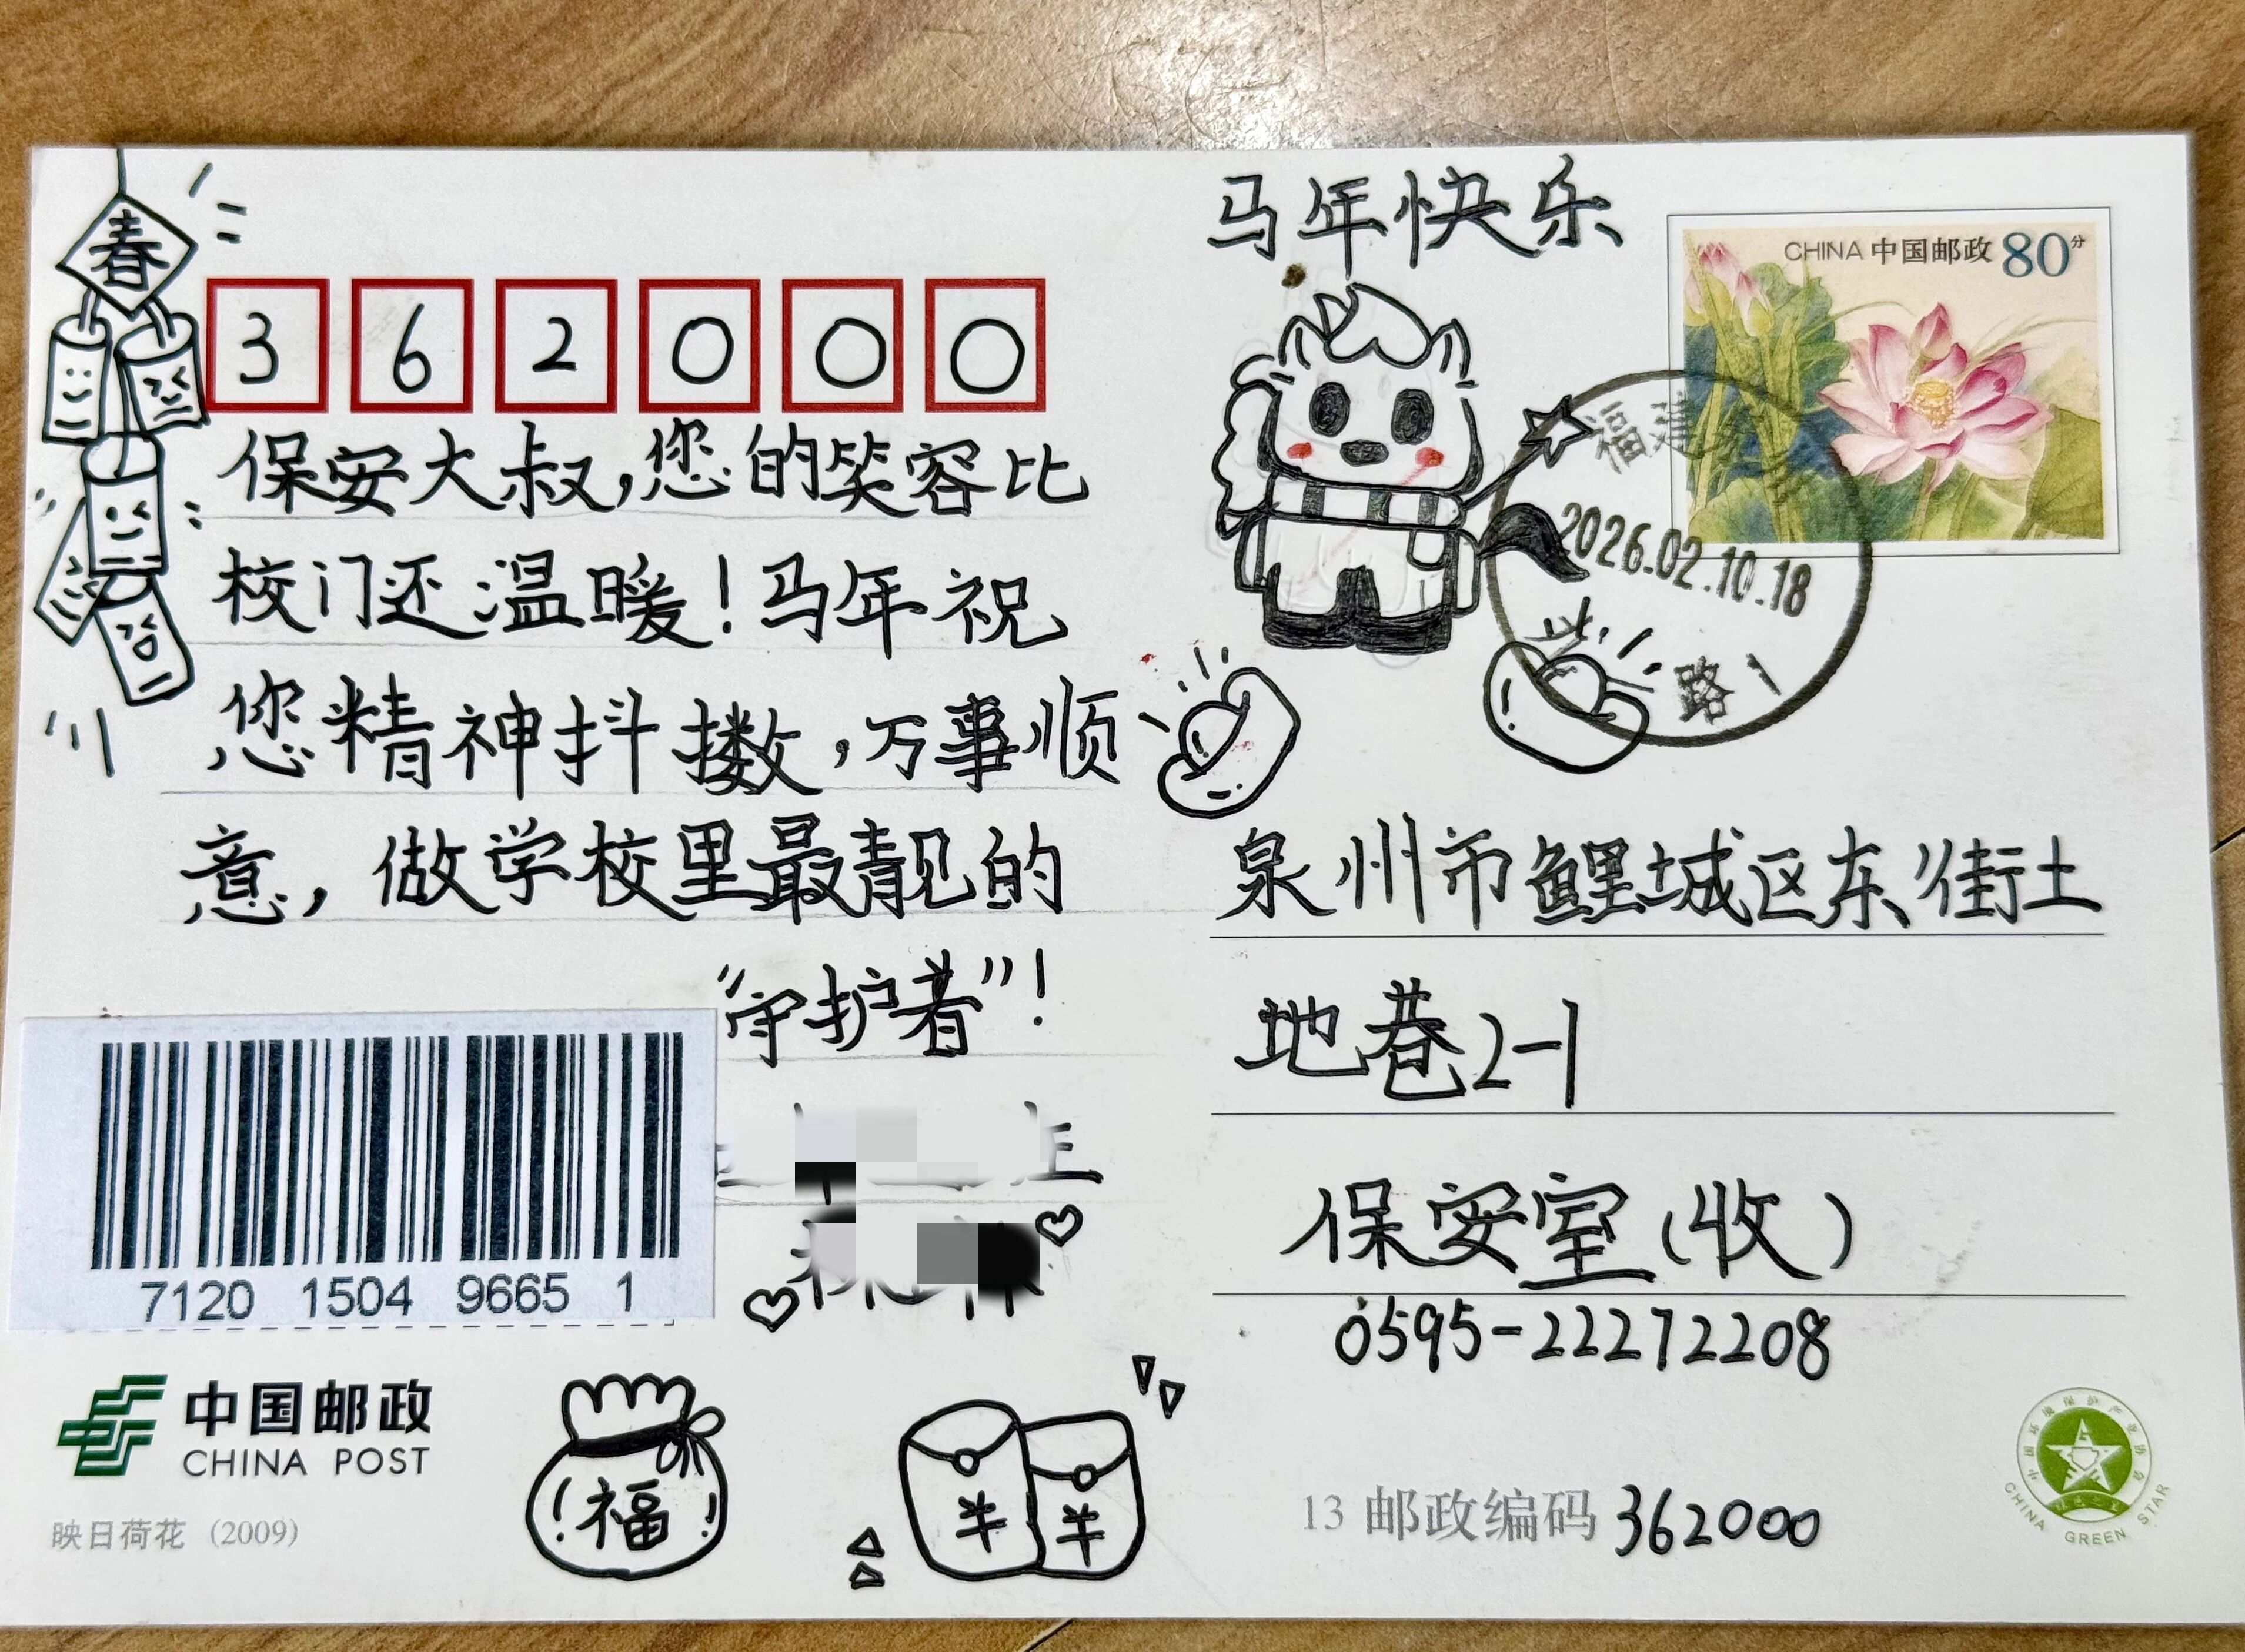 春
马年快乐
CHINA 中国邮政 80分
3 6 2 0 0 0
福建
2026.02.10.18
路1
保安大叔,您的笑容比
校门还温暖!马年祝
您精神抖擞,万事顺
意,做学校里最靓的
“守护者”!
泉州市鲤城区东街土
地巷2-1
保安室(收)
0595-22272208
7120 1504 9665 1
中国邮政
CHINA POST
映日荷花 (2009)
福
13 邮政编码 362000
CHINA GREEN STAR